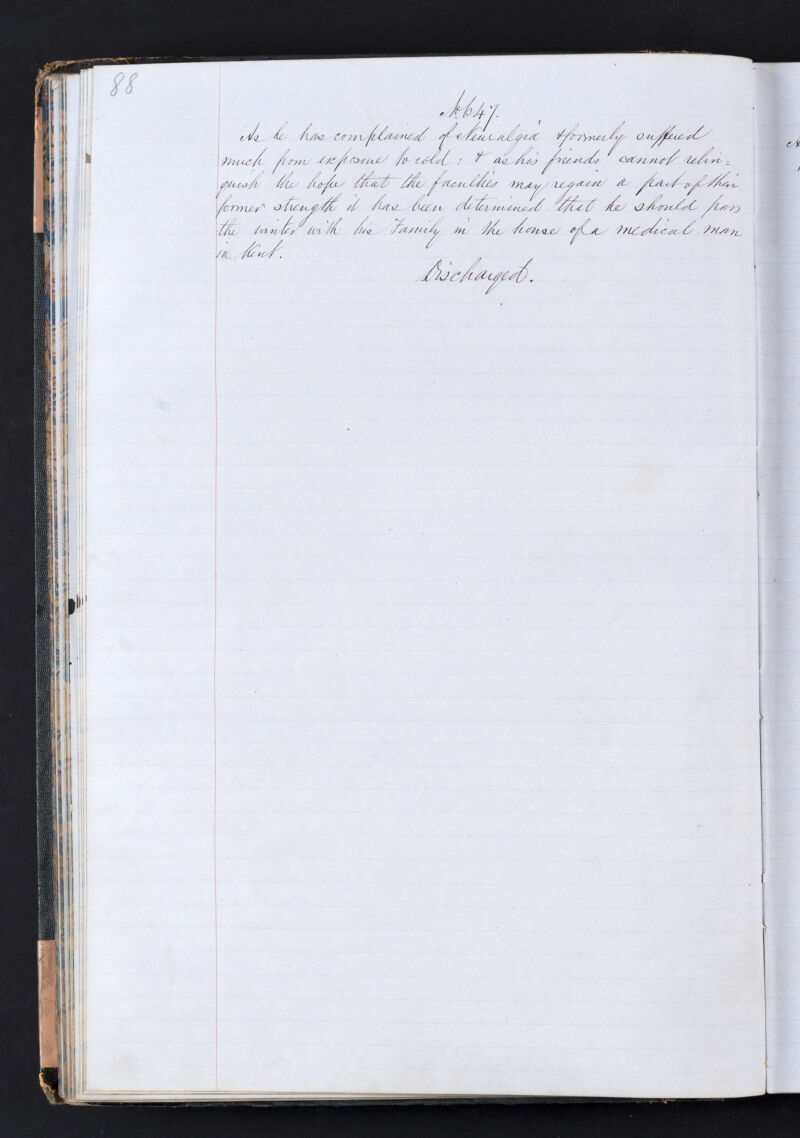 88
No. 647.
As he has complained of Neuralgia & formerly suffered
much from exposure to cold: & as his friends cannot relin=
quish the hope that the faculties may regain a part of their
former strength it has been determined that he should pass
the winter with his Family in the house of a medical man
in Kent.
Discharged.